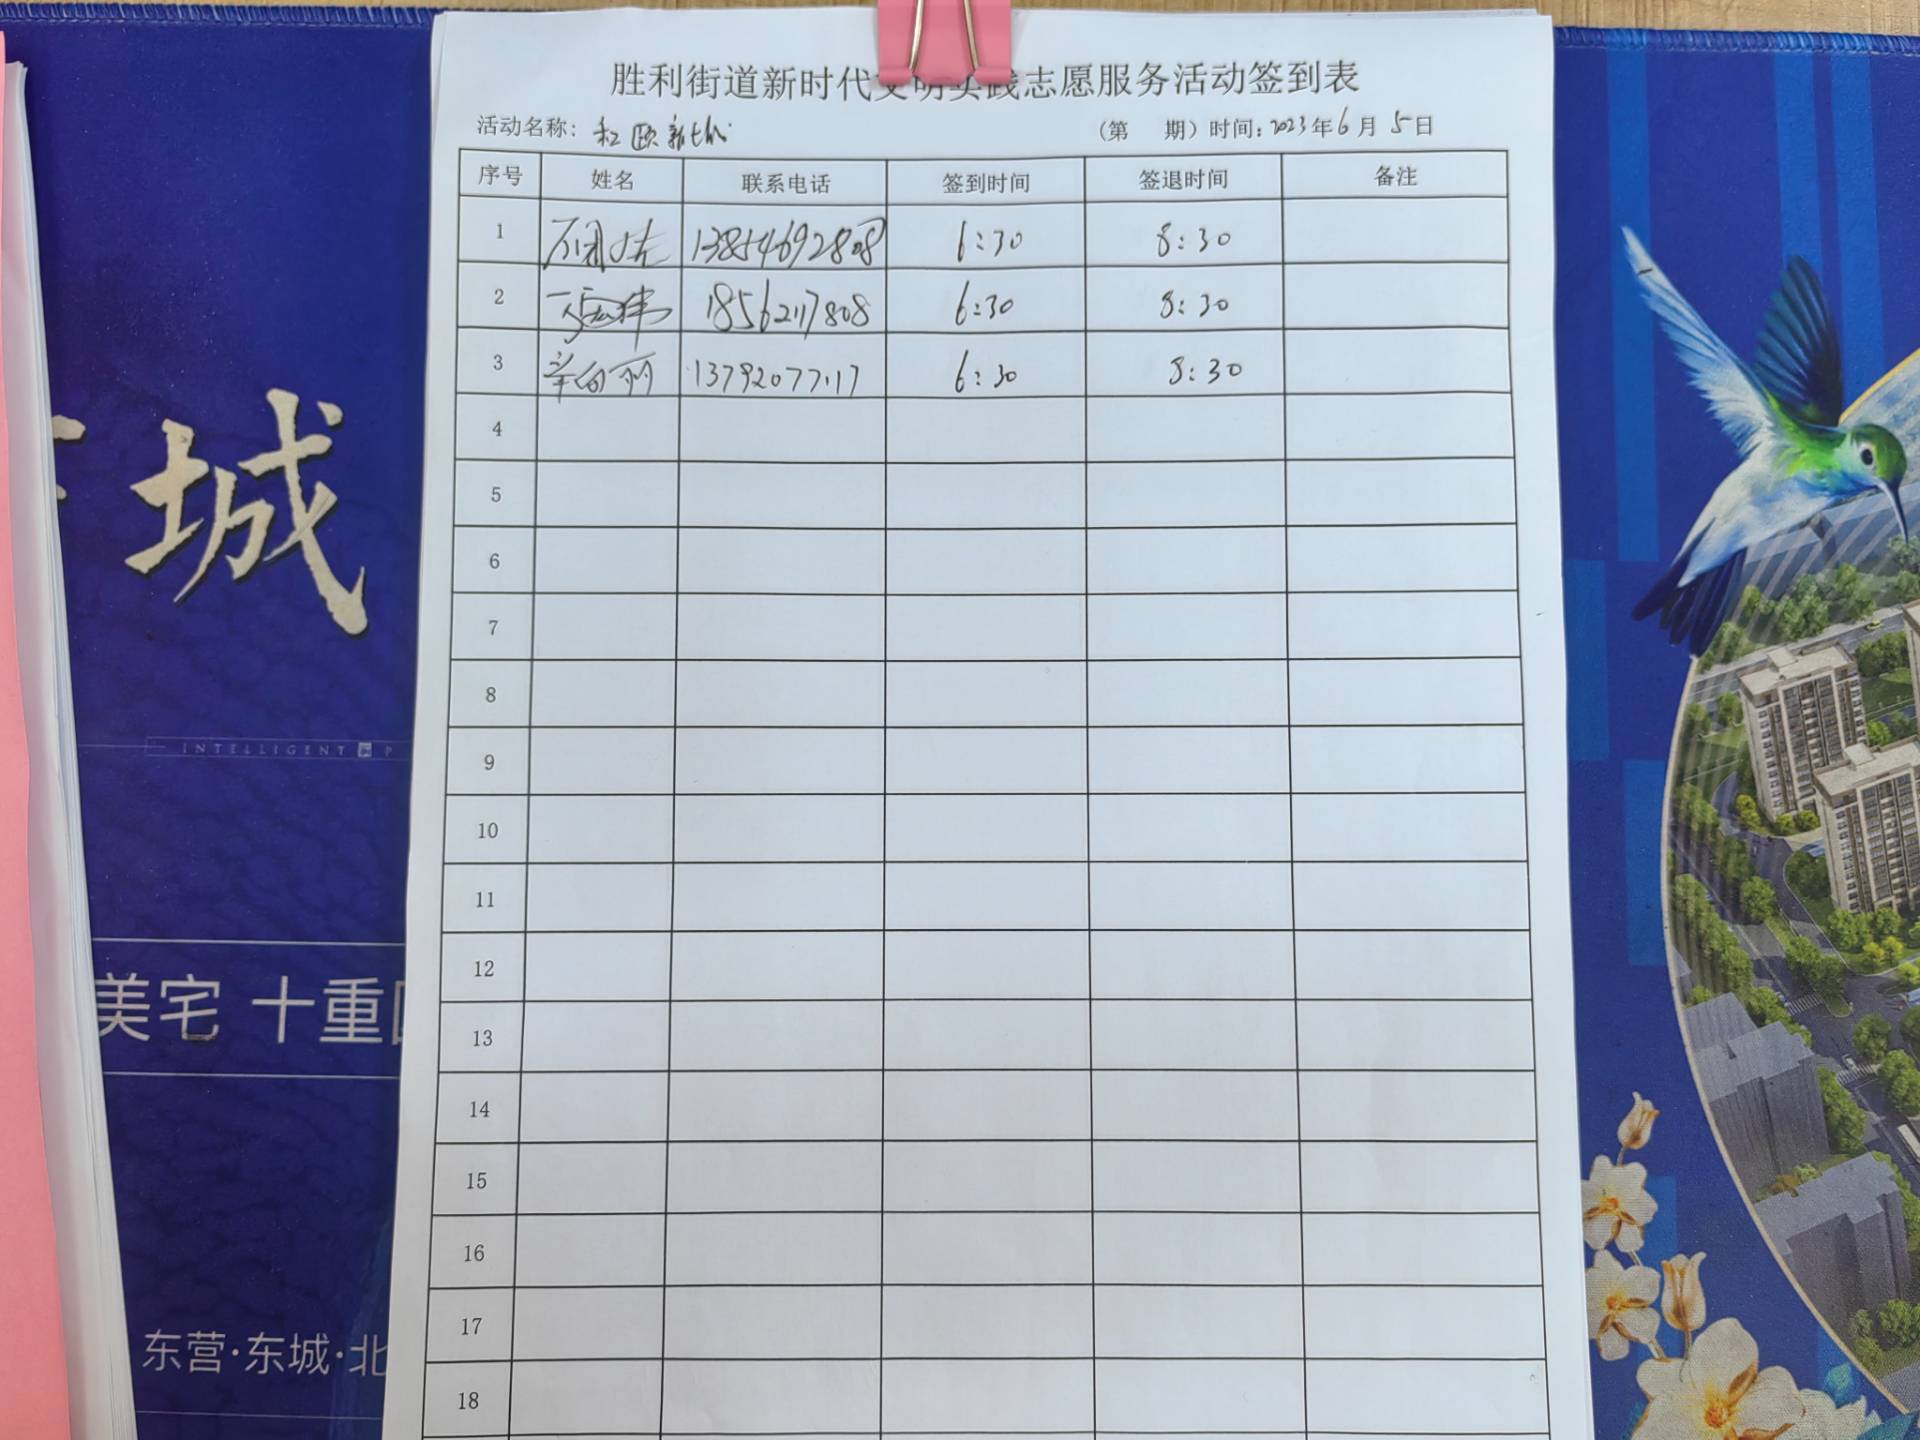 胜利街道新时代文明实践志愿服务活动签到表
活动名称： （第 期）时间：2023年6月5日
序号 姓名 联系电话 签到时间 签退时间 备注
1 13854692808 6:30 8:30
2 18562117808 6:30 8:30
3 辛向丽 13792077117 6:30 8:30
4
5
6
7
8
9
10
11
12
13
14
15
16
17
18
城
INTELLIGENT
美宅 十重
东营·东城·北